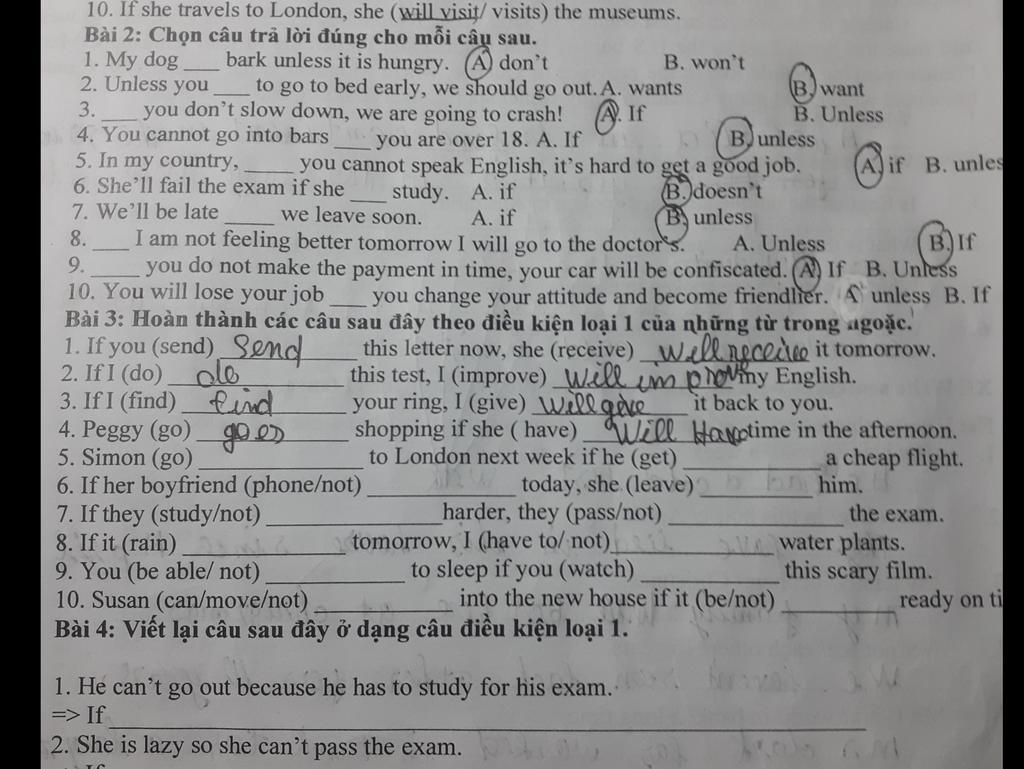 10. If she travels to London, she (will visit/ visits) the museums.
Bài 2: Chọn câu trả lời đúng cho mỗi câu sau.
1. My dog ____ bark unless it is hungry. A. don't B. won't
2. Unless you ____ to go to bed early, we should go out. A. wants B. want
3. ____ you don't slow down, we are going to crash! A. If B. Unless
4. You cannot go into bars ____ you are over 18. A. If B. unless
5. In my country, _____ you cannot speak English, it's hard to get a good job. A. if B. unles
6. She'll fail the exam if she ____ study. A. if B. doesn't
7. We'll be late _____ we leave soon. A. if B. unless
8. ____ I am not feeling better tomorrow I will go to the doctor's. A. Unless B. If
9. _____ you do not make the payment in time, your car will be confiscated. A. If B. Unless
10. You will lose your job ____ you change your attitude and become friendlier. A. unless B. If
Bài 3: Hoàn thành các câu sau đây theo điều kiện loại 1 của những từ trong ngoặc.
1. If you (send) Send this letter now, she (receive) Will receive it tomorrow.
2. If I (do) do this test, I (improve) Will improve my English.
3. If I (find) find your ring, I (give) Will give it back to you.
4. Peggy (go) goes shopping if she ( have) Will Have time in the afternoon.
5. Simon (go) ______________ to London next week if he (get) ____________ a cheap flight.
6. If her boyfriend (phone/not) _____________ today, she (leave) __________ him.
7. If they (study/not) _______________ harder, they (pass/not) _______________ the exam.
8. If it (rain) ______________ tomorrow, I (have to/ not) ______________ water plants.
9. You (be able/ not) ____________ to sleep if you (watch) ____________ this scary film.
10. Susan (can/move/not) ____________ into the new house if it (be/not) __________ ready on ti
Bài 4: Viết lại câu sau đây ở dạng câu điều kiện loại 1.
1. He can't go out because he has to study for his exam.
=> If
2. She is lazy so she can't pass the exam.